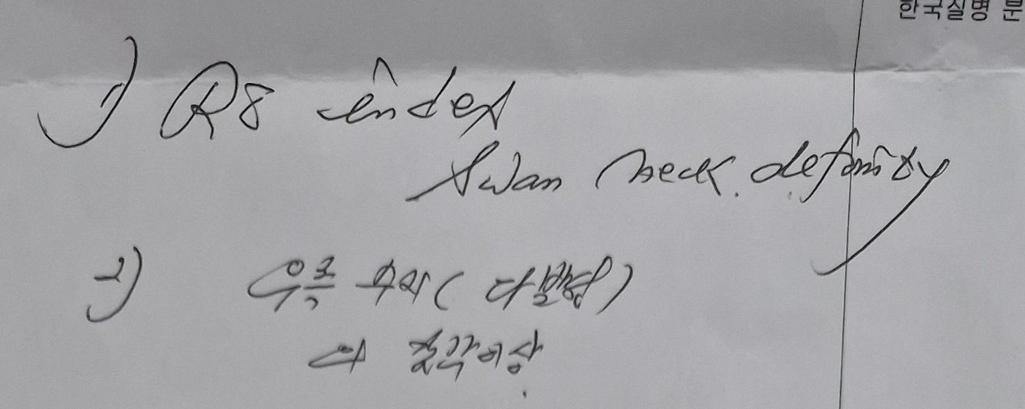 한국질병 분
1) Rt index
Swan neck deformity
2) 우측 수지 (다발성)
의 감각이상